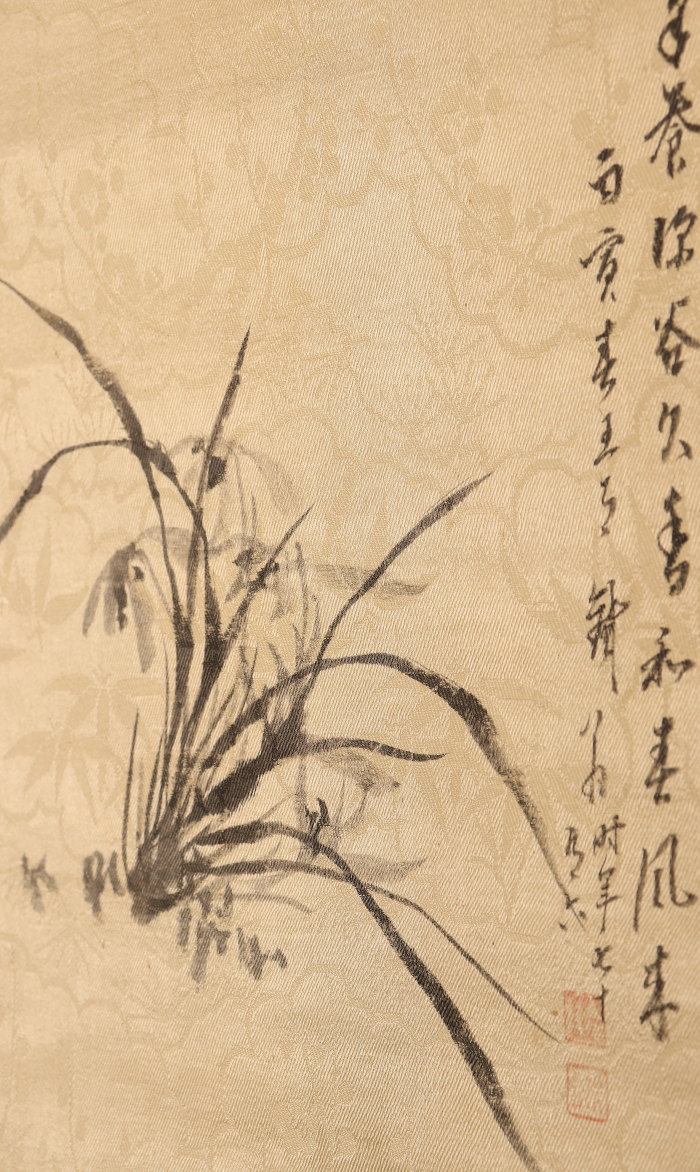 年養深谷久香和春風来
丙寅春王月 鐵翁 时年七十
有六